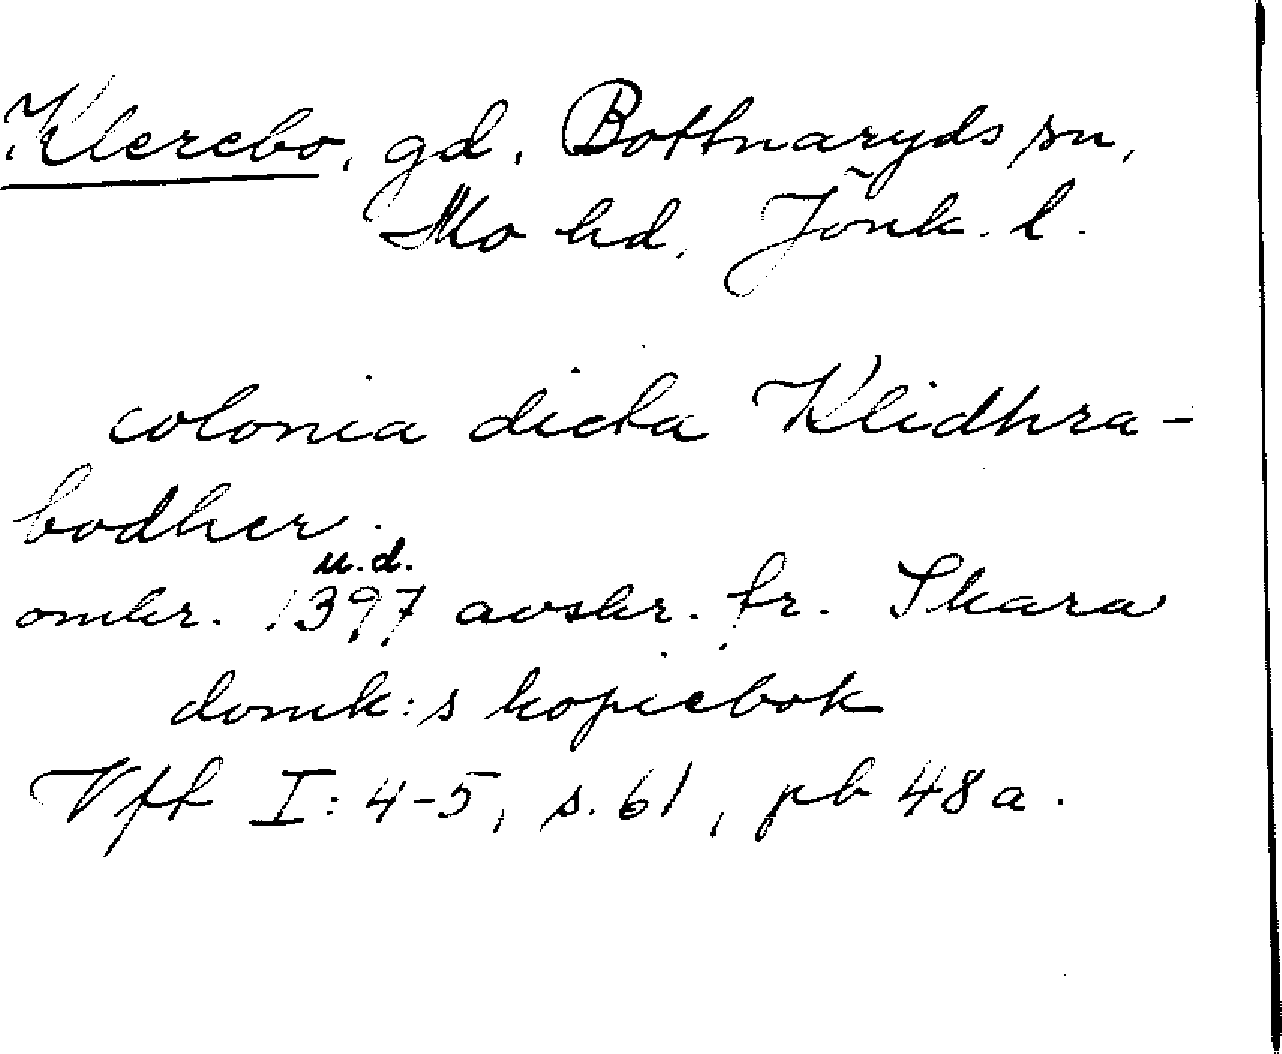 Klerebo, gd, Bottnaryds sn,
Mo hd, Jönk. l.
colonia dicta Klidhra-
bodher.
u.d.
omkr. 1397 avskr. fr. Skara
domk:s kopiebok
Vft I: 4-5, s. 61, pb 48 a.